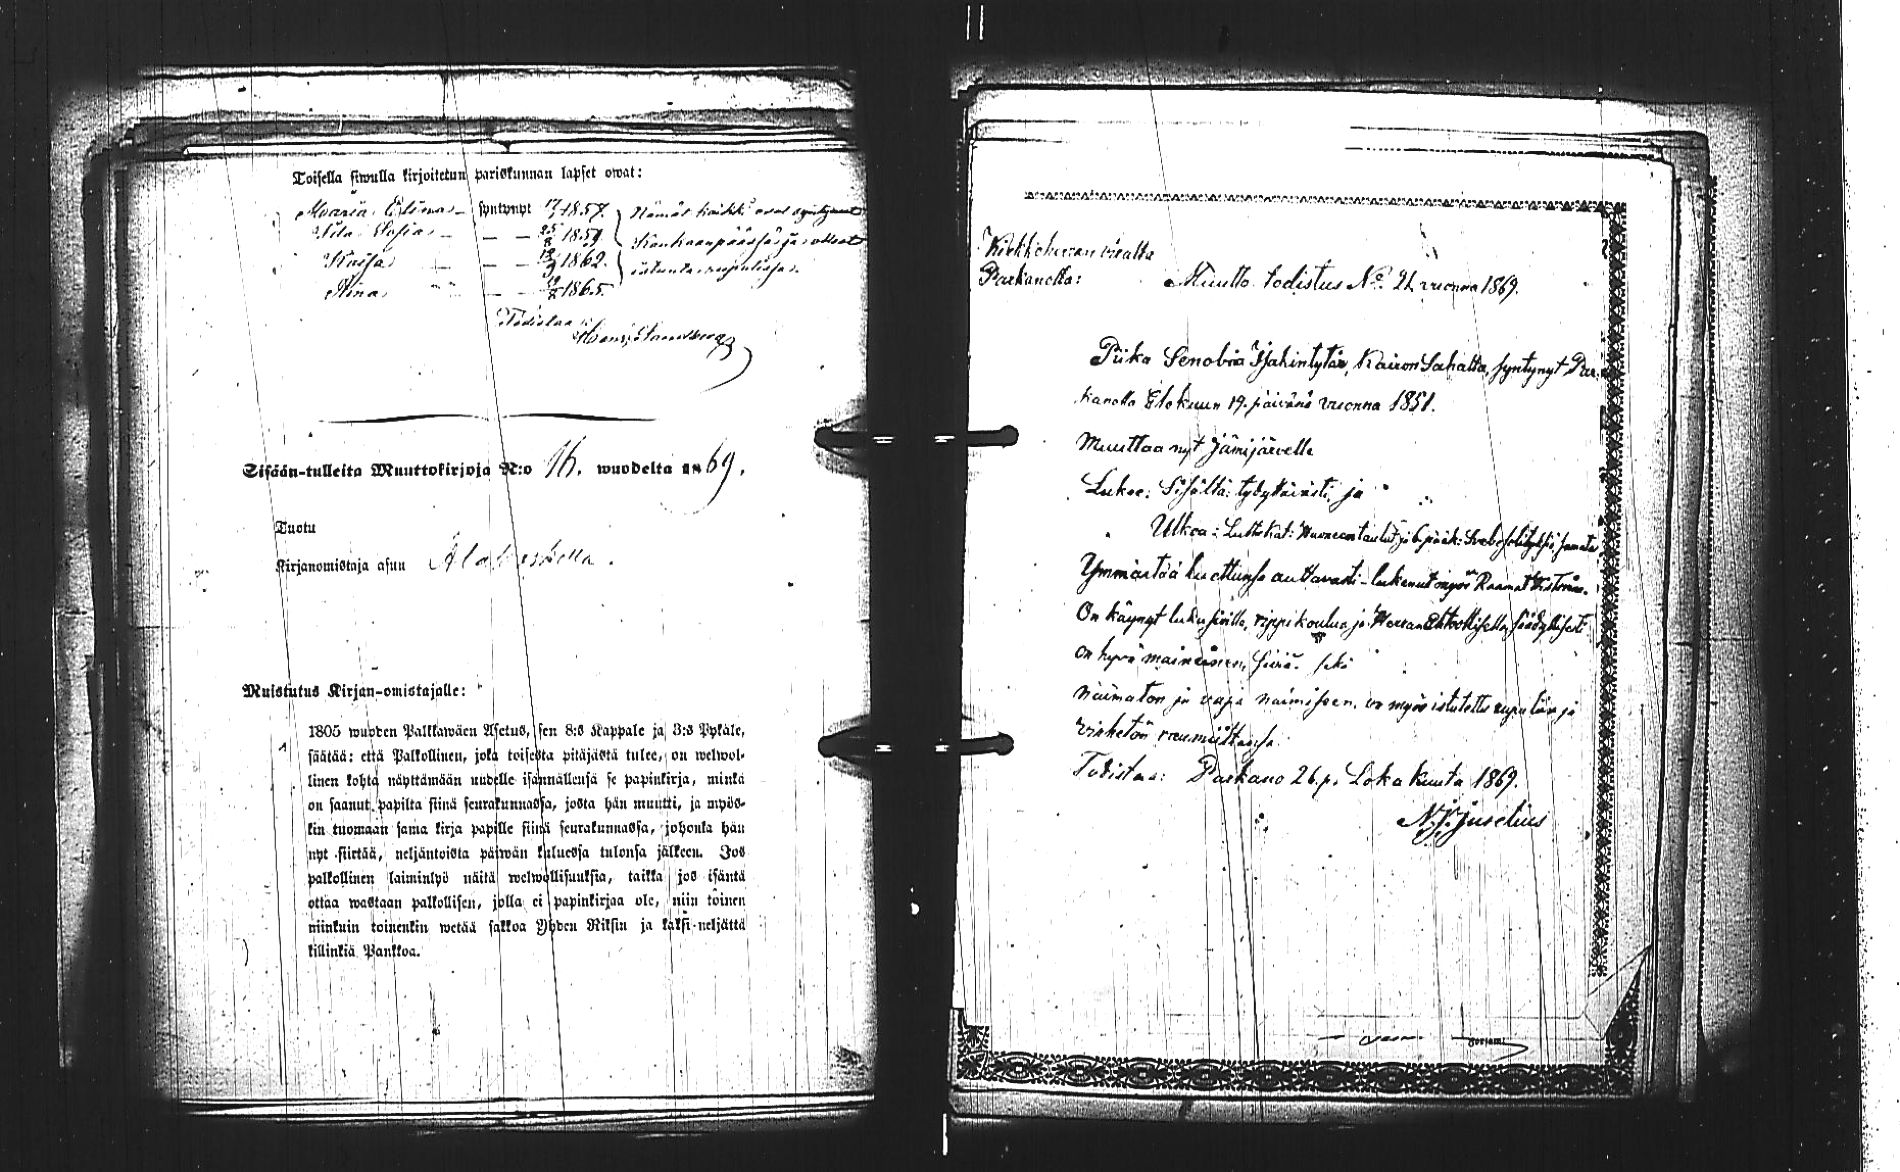 Toisella siwulla kirjoitetun pariskunnan lapset owat:
Maria Elina — syntynyt 17/1 1857. Nämät kaikki ovat syntyneet
Sofia — — — 1859. Kankaanpäässä ja
Kaisa — — 1862.
Miina — — 1865.
Todistaa
Sisään-tulleita Muuttokirjoja N:o 16. wuodelta 1869.
Tuotu
Kirjanomistaja asuu Alakeskella.
Muistutus Kirjan-omistajalle:
1805 wuoden Palkkawäen Asetus, sen 8:s Kappale ja 3:s Pykäle,
säätää: että Palkollinen, joka toisesta pitäjästä tulee, on welwol-
linen kohta näyttämään uudelle isännällensä se papinkirja, minkä
on saanut papilta siinä seurakunnassa, josta hän muutti, ja myös-
kin tuomaan sama kirja papille siinä seurakunnassa, johonka hän
nyt siirtää, neljäntoista päiwän kuluessa tulonsa jälkeen. Jos
palkollinen laiminlyö näitä welwollisuuksia, taikka jos isäntä
ottaa wastaan palkollisen, jolla ei papinkirjaa ole, niin toinen
niinkuin toinenkin wetää sakkoa Yhden Riksin ja kaksi neljättä
killinkiä Pankkoa.
Kirkkoherran viralta
Parkanolla: Muutto todistus No. 21 vuonna 1869.
Piika Senobia Isakintytär, Kairon Sahalta, syntynyt Par-
kanolla Elokuun 19. päivänä vuonna 1851.
Muuttaa nyt Jämijärvelle
Lukee: Sisältä: tydyttävästi ja
Ulkoa:
Ymmärtää luettunsa auttavasti - lukenut myös
On käynyt lukusioilla, rippikoulua ja Herran Ehtoollisella säädyllisesti
on hyvä maineinen, siviä. sekä
naimaton ja vapa naimiseen. on myös istutettu rupulia ja
virhetön ruumiiltansa.
Todistaa: Parkano 26 p. Loka kuuta 1869.
N. J. Juselius